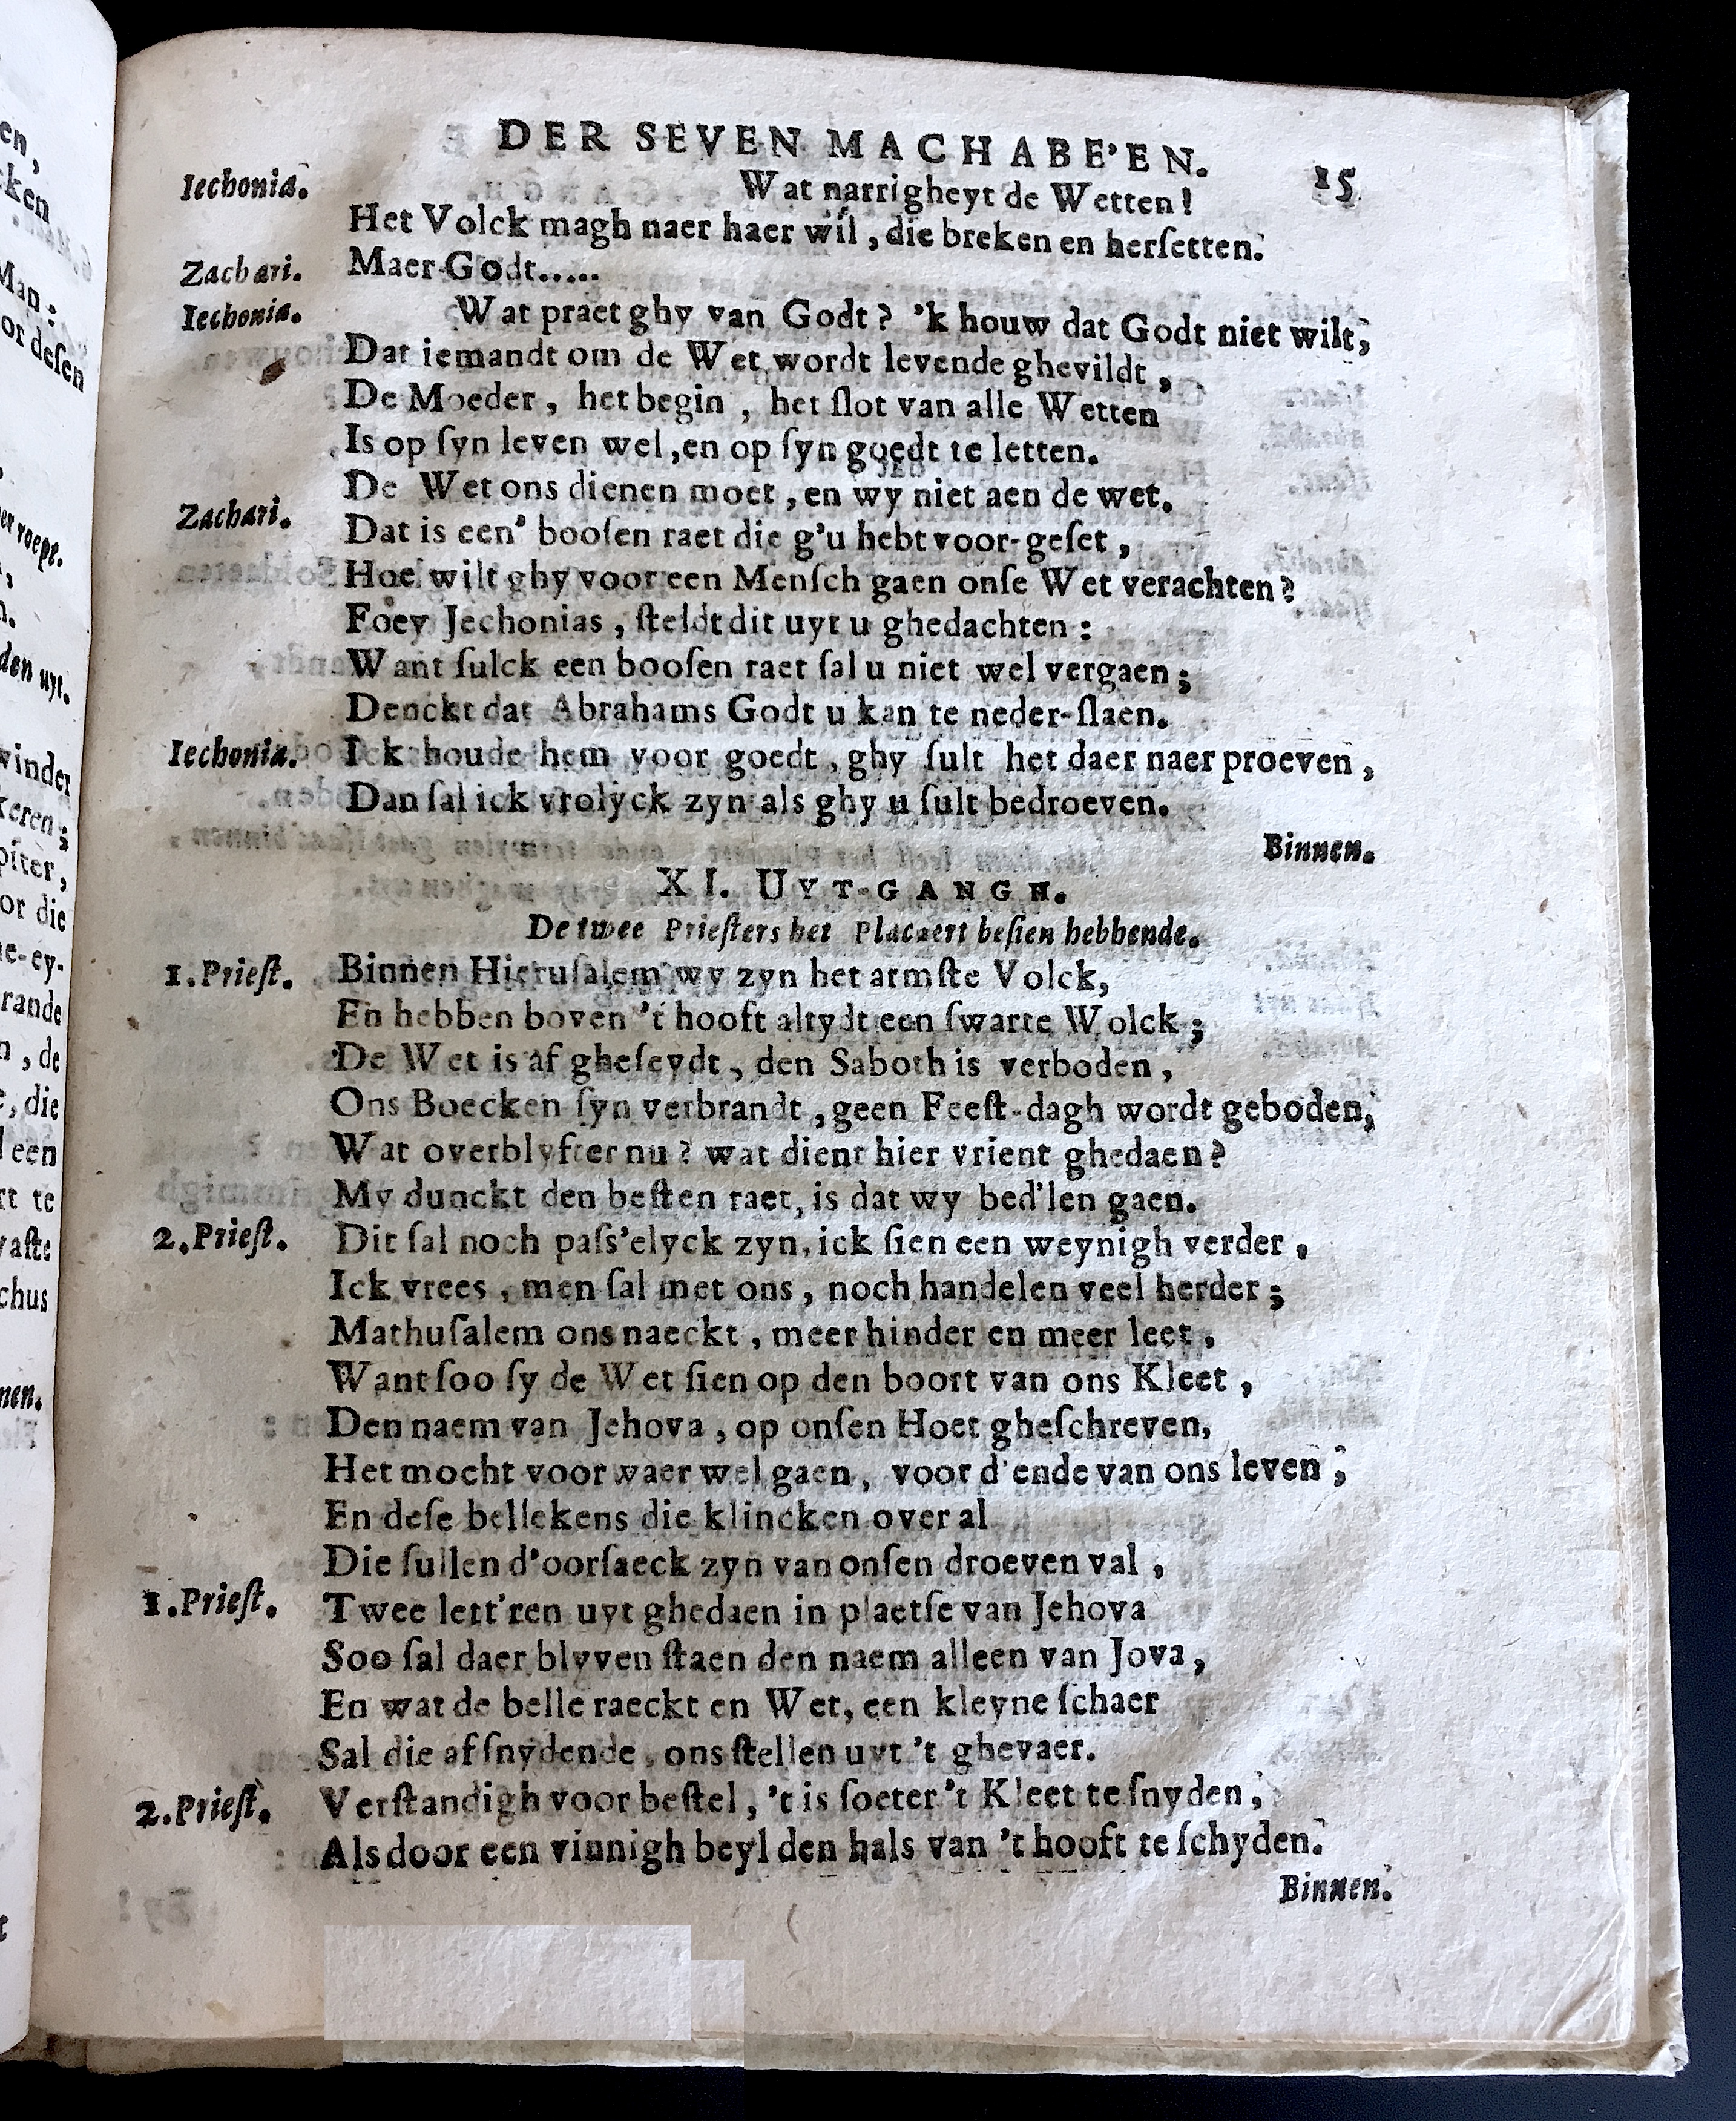 en,
cken
Man:
or deſen
er roept.
n.
den uyt.
winder
keren;
piter,
or die
ne-ey-
rande
n, de
e, die
l een
rt te
vaſte
chus
nen.
DER SEVEN MACHABE'EN. 15
Iechonia. Wat narrigheyt de Wetten!
Het Volck magh naer haer wil, die breken en herſetten.
Zachari. Maer Godt.....
Iechonia. Wat praet ghy van Godt? 'k houw dat Godt niet wilt,
Dat iemandt om de Wet wordt levende ghevildt,
De Moeder, het begin, het ſlot van alle Wetten
Is op ſyn leven wel, en op ſyn goedt te letten.
De Wet ons dienen moet, en wy niet aen de wet.
Zachari. Dat is een' booſen raet die g'u hebt voor-geſet,
Hoe wilt ghy voor een Menſch gaen onſe Wet verachten?
Foey Jechonias, ſteldt dit uyt u ghedachten:
Want ſulck een booſen raet ſal u niet wel vergaen;
Denckt dat Abrahams Godt u kan te neder-ſlaen.
Iechonia. Ik houde hem voor goedt, ghy ſult het daer naer proeven,
Dan ſal ick vrolyck zyn als ghy u ſult bedroeven.
Binnen.
XI. UYT-GANGH.
De twee Prieſters het Placaert beſien hebbende.
1. Prieſt. Binnen Hieruſalem wy zyn het armſte Volck,
En hebben boven 't hooft altydt een ſwarte Wolck;
De Wet is af gheſeydt, den Saboth is verboden,
Ons Boecken ſyn verbrandt, geen Feeſt-dagh wordt geboden,
Wat overblyfter nu? wat dient hier vrient ghedaen?
My dunckt den beſten raet, is dat wy bed'len gaen.
2. Prieſt. Dit ſal noch paſs'elyck zyn, ick ſien een weynigh verder,
Ick vrees, men ſal met ons, noch handelen veel herder;
Mathuſalem ons naeckt, meer hinder en meer leet,
Want ſoo ſy de Wet ſien op den boort van ons Kleet,
Den naem van Jehova, op onſen Hoet gheſchreven,
Het mocht voorwaer wel gaen, voor d'ende van ons leven;
En deſe bellekens die klincken over al
Die ſullen d'oorſaeck zyn van onſen droeven val,
1. Prieſt. Twee lett'ren uyt ghedaen in plaetſe van Jehova
Soo ſal daer blyven ſtaen den naem alleen van Jova,
En wat de belle raeckt en Wet, een kleyne ſchaer
Sal die af ſnydende, ons ſtellen uyt 't ghevaer.
2. Prieſt. Verſtandigh voor beſtel, 't is ſoeter 't Kleet te ſnyden,
Als door een vinnigh beyl den hals van 't hooft te ſchyden.
Binnen.